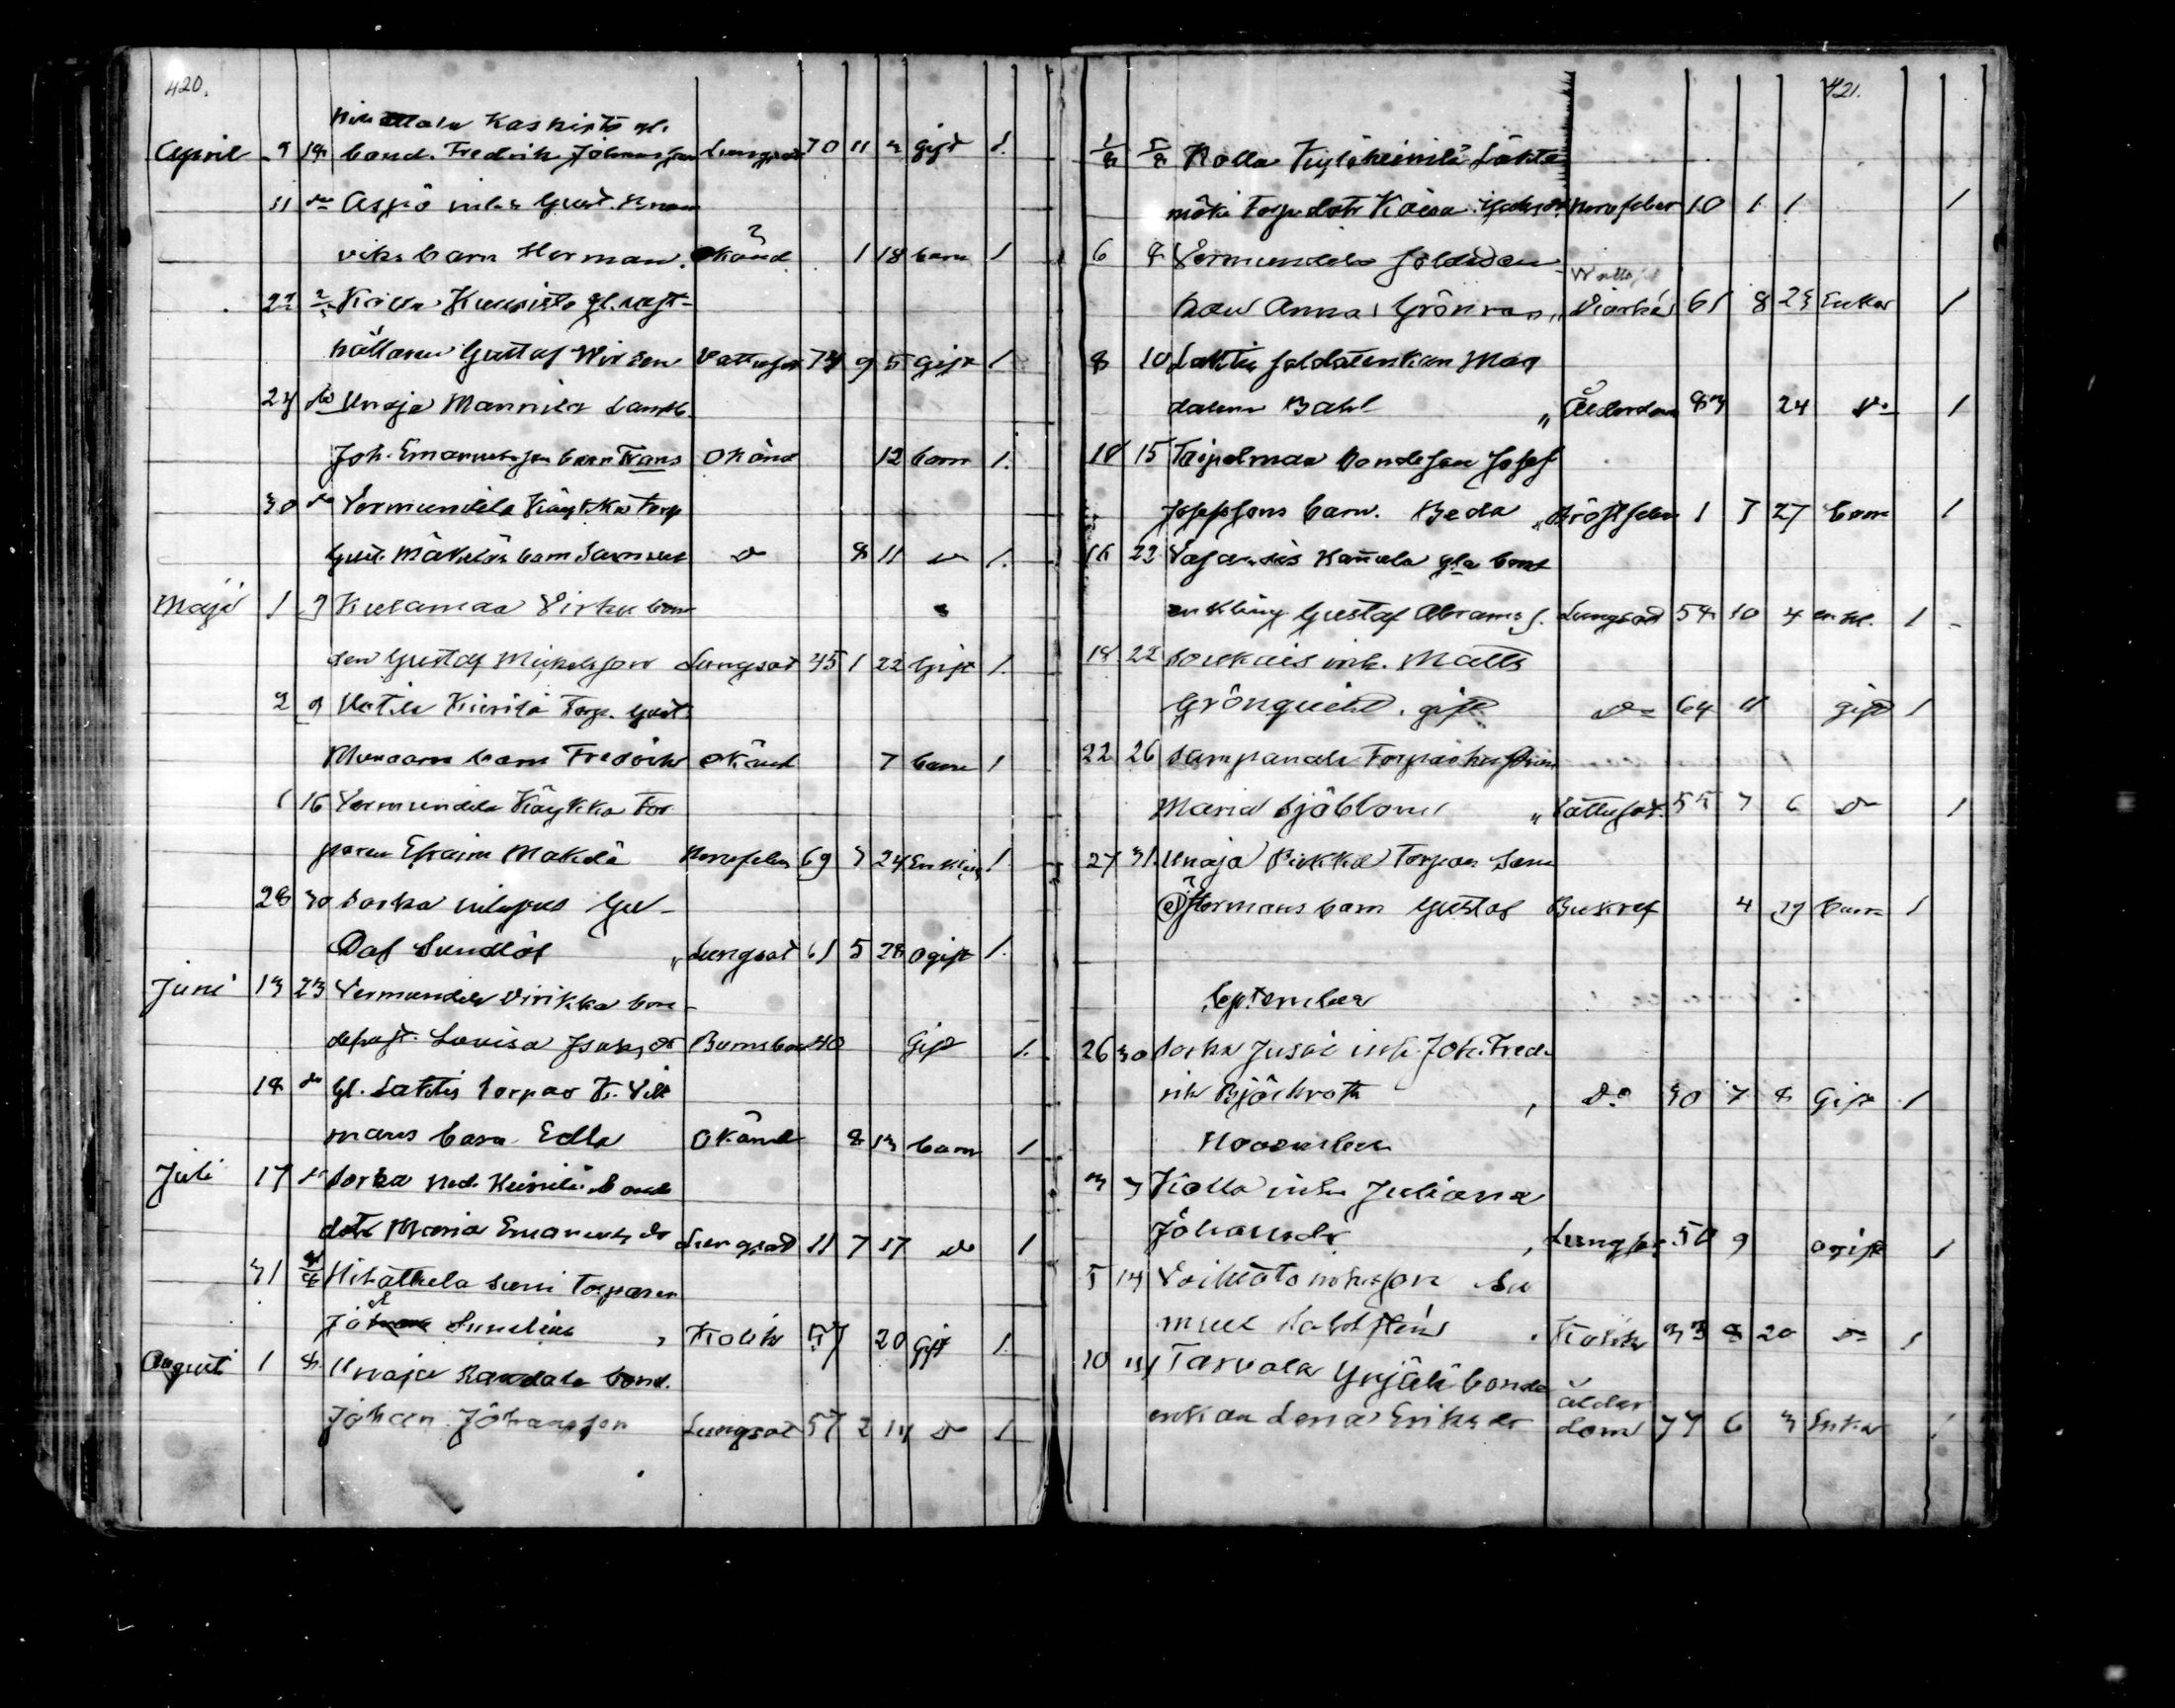 420.
Kaskisto gl.
April 9 14 bond. Fredrik Johansson Lungsot 70 11 3 gift 1.
11 do Aspö inhs Gust.
viks barn Herman. okänd 1 18 barn 1
22 Kolla Kuusisto gl. rust-
hållaren Gustaf Wirzen Vattusot 74 9 5 Gift 1
24 do Unaja Mannila Landb.
Joh. Emanuelsson barn Frans okänd 12 barn 1.
30 do Vermundila Käykkä Torp
Gust. Mäkeläs barn Samuel do 8 11 do 1.
Maji 1 9 Kulamaa Virku bon
den Gustaf Mickelsson Lungsot 45 1 22 Gift 1.
2 9 Kierilä Torp. Gust.
barn Fredrik okänd 7 barn 1
1 16 Vermundila Käykkä Tor
paren Efraim Makelä Nervfeber 69 3 24 Enkling 1.
28 30 Sorka inhyses Gu-
staf Sundlöf " Lungsot 61 5 28 ogift 1.
Juni 13 23 Vermundila Virikka bon-
dehust. Lovisa Isaksdr Barnsbörd 40 Gift 1.
18 do Gl. Lahtis Torpar K. Vilk
mans barn Edla okänd 8 13 barn 1
Juli 17 Sorka Ned. Heinilä bonde
dotr Maria Emanuelsdr Lungsot 11 7 17 do 1
31 4/8 Hihättula Suni Torparen
Joh Sundlin , Kolik 57 20 gift 1.
Augusti 1 8. Unaja Randala bond.
Johan Johansson Lungsot 57 2 14 do 1
421.
1/8 5/8 Kolla Kyläheinilä Lähte
mäki Torpedotr Kaisa Nervfeber 10 1 1 1
6 8 Vermundila Soldaten
kan Anna Grönroos " Diarhé 61 8 23 Enka 1
8 10 Lahtis Soldatenkan Mag
dalena Bahl " Ålderdom 83 24 do 1
10 15 Taipalmaa Bondeson Josef
Josefsons barn. Beda " Bröstfeber 1 7 27 barn 1
16 22 Vasarais Kauela gla bond
enkling Gustaf Abrams s. Lungsot 54 10 4 enkl. 1
18 22 Soukais inh. Matts
Grönquist. gift do 64 11 gift 1
22 26 Sampanala Torparehustrun
Maria Sjöblom " Vattusot. 55 7 6 do 1
27 31 Unaja Pirkkä Torpar Sam
Östermans barn Gustaf Bukref 4 29 barn 1
September
26 30 Sorka Jusai inh. Joh. Fred-
rik Björkroth , do 30 7 8 Gift 1
November
3 7 Kolla inhs Juliana
Johansdr , Lungsot 50 9 ogift 1
5 14 Voiluoto inhsson Sa
muel , Kolik 33 8 20 do 1
10 14 Tarvola Yrjälä bonde
enkan Lena Eriksdr ålder
dom 77 6 3 Enka 1